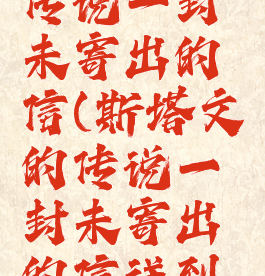 传说一封
未寄出的
信(斯塔文
的传说一
封未寄出
的信送到